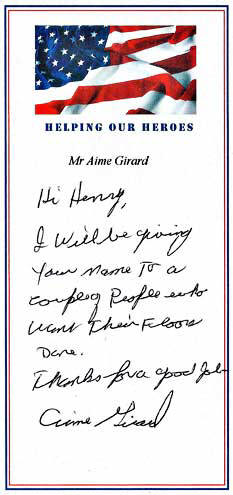 HELPING OUR HEROES
Mr Aime Girard
Hi Henry,
I Will be giving
Your Name To a
couple of People who
Want Their Floors
Done.
Thanks for a good Job
Aime Girard